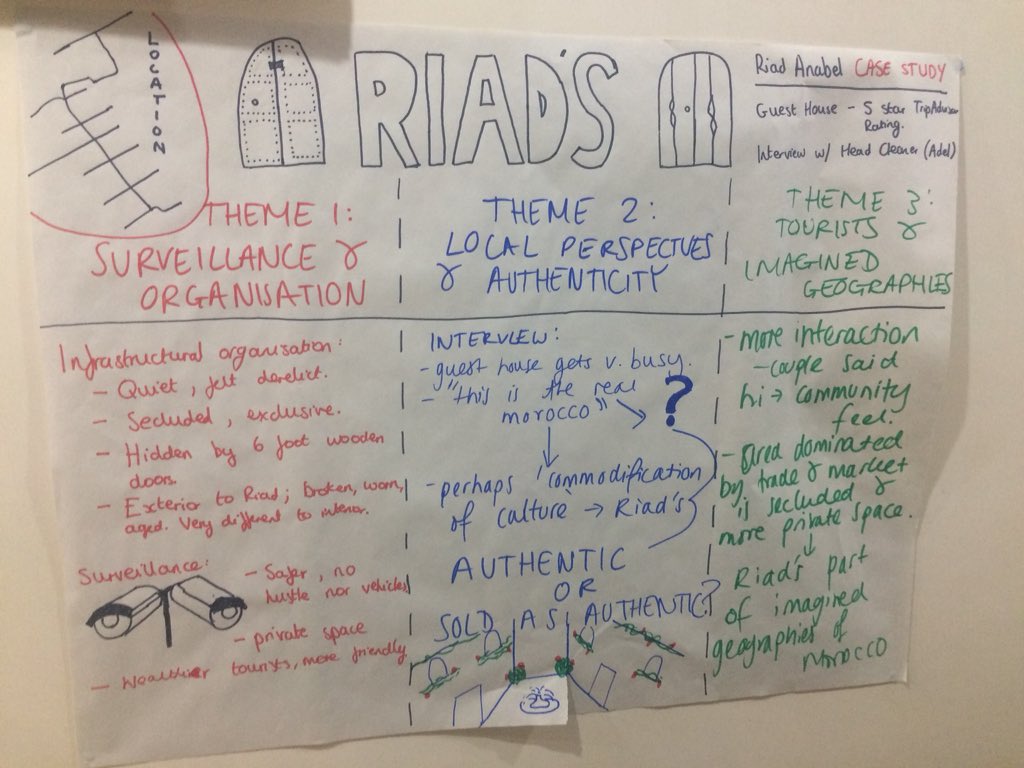 LOCATION
RIAD'S
Riad Anabel CASE STUDY
Guest House - 5 star TripAdvisor
Rating.
Interview w/ Head Cleaner (Adel)
THEME 1:
SURVEILLANCE &
ORGANISATION
Infrastructural organisation:
- Quiet, felt derelict.
- Secluded, exclusive.
- Hidden by 6 foot wooden
doors.
- Exterior to Riad; broken, worn,
aged. Very different to interior.
Surveillance:
- Safer, no
hustle nor vehicles
- private space
- Wealthier tourists, more friendly
THEME 2:
LOCAL PERSPECTIVES
& AUTHENTICITY
INTERVIEW:
- guest house gets v. busy.
- "this is the real
morocco" → ?
- perhaps 'commodification
of culture' → Riad's
AUTHENTIC
OR
SOLD AS AUTHENTIC?
THEME 3:
TOURISTS &
IMAGINED
GEOGRAPHIES
- more interaction
- couple said
hi → community
feel.
- Area dominated
by trade & market
is secluded &
more private space.
Riad's part
of imagined
geographies of
Morocco